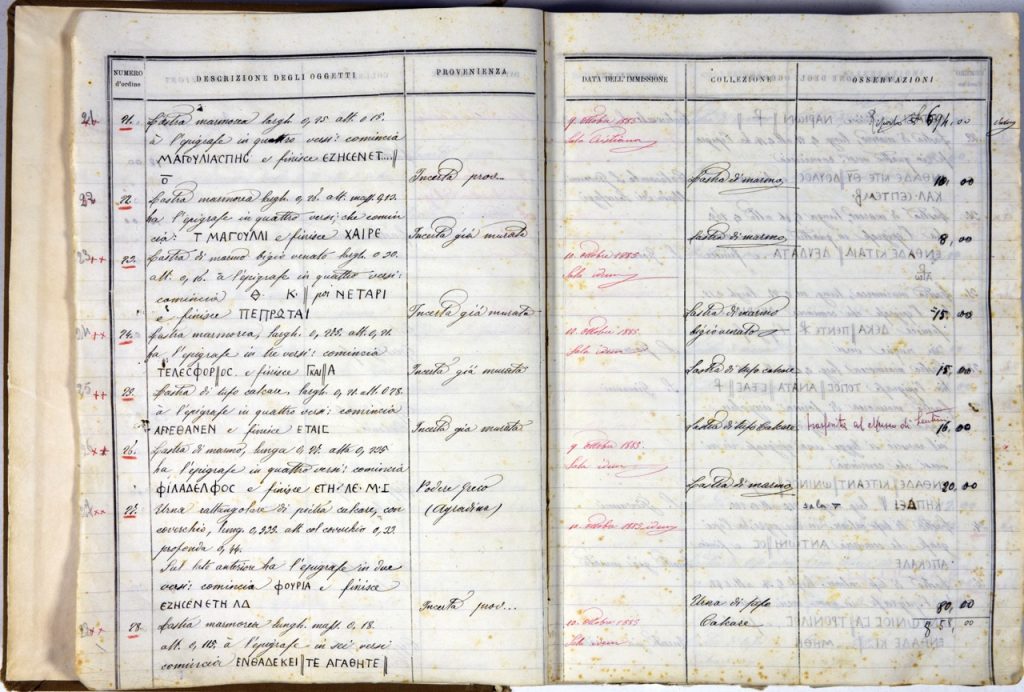 NUMERO d'ordine
DESCRIZIONE DEGLI OGGETTI
PROVENIENZA
21. Lastra marmorea largh. 0,25 alt. 0 18.
à l'epigrafe in quattro versi: comincia
ΜΑΓΟΥΛΙΑCΠΗC e finisce ΕΖΗCΕΝΕΤ...
Incerta prov...
22. Lastra marmorea largh. 0, alt. mass. 0,13.
ha l'epigrafe in quattro versi; che comin
cia: Τ ΜΑΓΟΥΛΛΙ e finisce ΧΑΙΡΕ
Incerta già murata
23. Lastra di marmo bigio venato largh. 0.20.
alt. 0,16. à l'epigrafe in quattro versi:
comincia Θ. Κ. poi ΝΕΤΑΡΙ
e finisce ΠΕΠΡΩΤΑΙ
Incerta già murata
24. Lastra marmorea, largh. 0, alt. 0,
ha l'epigrafe in tre versi: comincia
ΤΕΛΕCΦΟΡ|ΟC e finisce
Incerta già murata
25. Lastra di tufo calcare, largh 0, alt. 0
à l'epigrafe in quattro versi: comincia
ΑΠΕΘΑΝΕΝ e finisce ΕΤΑΙC
Incerta già murata
26. Lastra di marmo, lunga 0, alta 0,
ha l'epigrafe in quattro versi: comincia
ΦΙΛΑΔΕΛΦΟC e finisce ΕΤΗ·ΛΕ·Μ·Ι
Podere greco
(Agradina)
27. Urna rettangolare di pietra calcare, con
coverchio, lung. 0, alt. col coverchio 0,33.
profonda 0,
Sul lato anteriore ha l'epigrafe in due
versi: comincia ΦΟΥΡΙΑ e finisce
ΕΖΗCΕΝΕΤΗ ΛΔ
Incerta prov...
28. Lastra marmorea lungh. mass. 0, 18.
alt. 0, 115. à l'epigrafe in sei versi
comincia ΕΝΘΑΔΕΚΕΙ||ΤΕ ΑΓΑΘΗΤΕ||
DATA DELL'IMMISSIONE
COLLEZIONE
OSSERVAZIONI
Riporto £ 694,00
9 ottobre 1885
Sala Cristiana
Lastra di marmo 10,00
Lastra di marmo 8,00
10. ottobre 1885
Sala idem
Lastra di marmo
bigio venato 15,00
10. ottobre 1885.
Sala idem
Lastra di tufo calcare 15,00
Lastra di tufo calcare trasferita al museo di Lentini 16,00
9 ottobre 1885.
Sala idem
Lastra di marmo 20,00
sala V
10. ottobre 1885. idem
Urna di tufo
Calcare 80,00
858,00
10. ottobre 1885
Sala idem